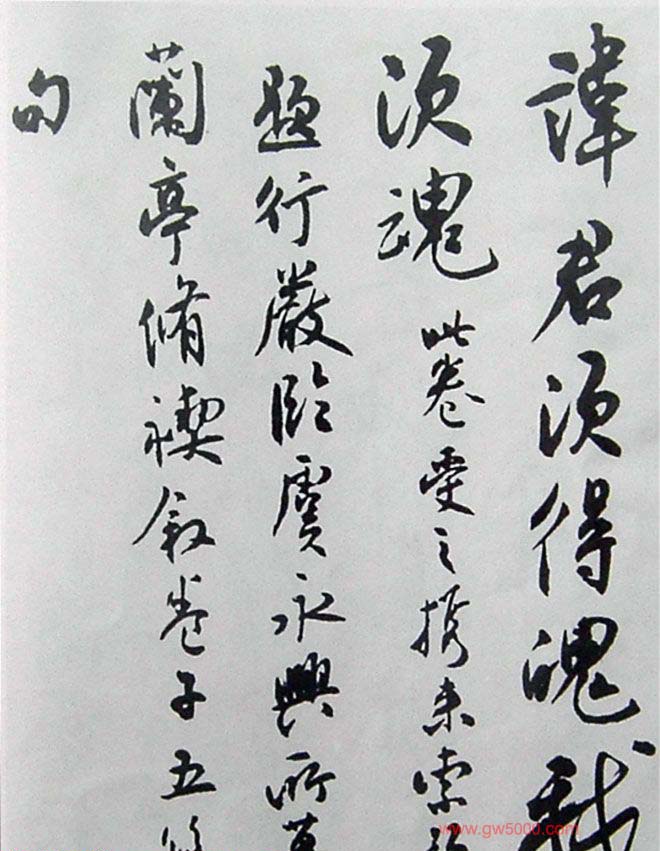 諱君須得魂我
須魂此卷雯之携来索
題行嚴臨虞永興所
蘭亭脩禊叙卷子五
句
www.gw5000.com